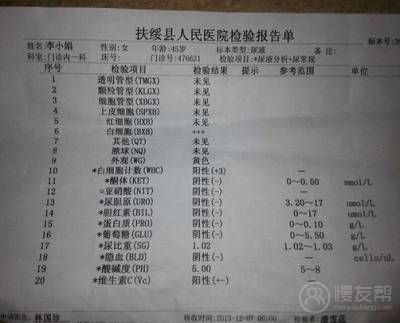 扶绥县人民医院检验报告单
标本号:
姓名:李小娟 性别:女 年龄:45岁 标本类型:尿液 备注:
科室:门诊内一科 床号: 门诊号:476621 检验项目:*尿液分析+尿常规
序号 检验项目 检验结果 提示 参考范围 单位
1 透明管型(TMGX) 未见
2 颗粒管型(KLGX) 未见
3 细胞管型(XBGX) 未见
4 上皮细胞(SPXB) 未见
5 红细胞(HXB) 未见
6 白细胞(BXB) +++
7 其他(QT) 未见
8 脓球(NQ) 未见
9 外观(WG) 黄色
10 *白细胞计数(WBC) 阳性(+3) —
11 *酮体(KET) 阴性(-) 0~0.50 mmol/L
12 亚硝酸(NIT) 阴性(-) —
13 *尿胆原(URO) 阴性(-) 3.20~17 umol/L
14 *胆红素(BIL) 阴性(-) 0~17 umol/L
15 *蛋白质(PRO) 阴性(-) 0~0.10 g/L
16 *葡萄糖(GLU) 阴性(-) 0~5.50 g/L
17 *尿比重(SG) 1.02 1.02~1.03 g/L
18 *隐血(BLD) 阴性(-) — cells/uL
19 *酸碱度(PH) 5.00 5~8
20 *维生素C(Vc) 阳性(+-) —
申请医生: 林国珍 接收时间:2013-12-07 00:00
慢友帮